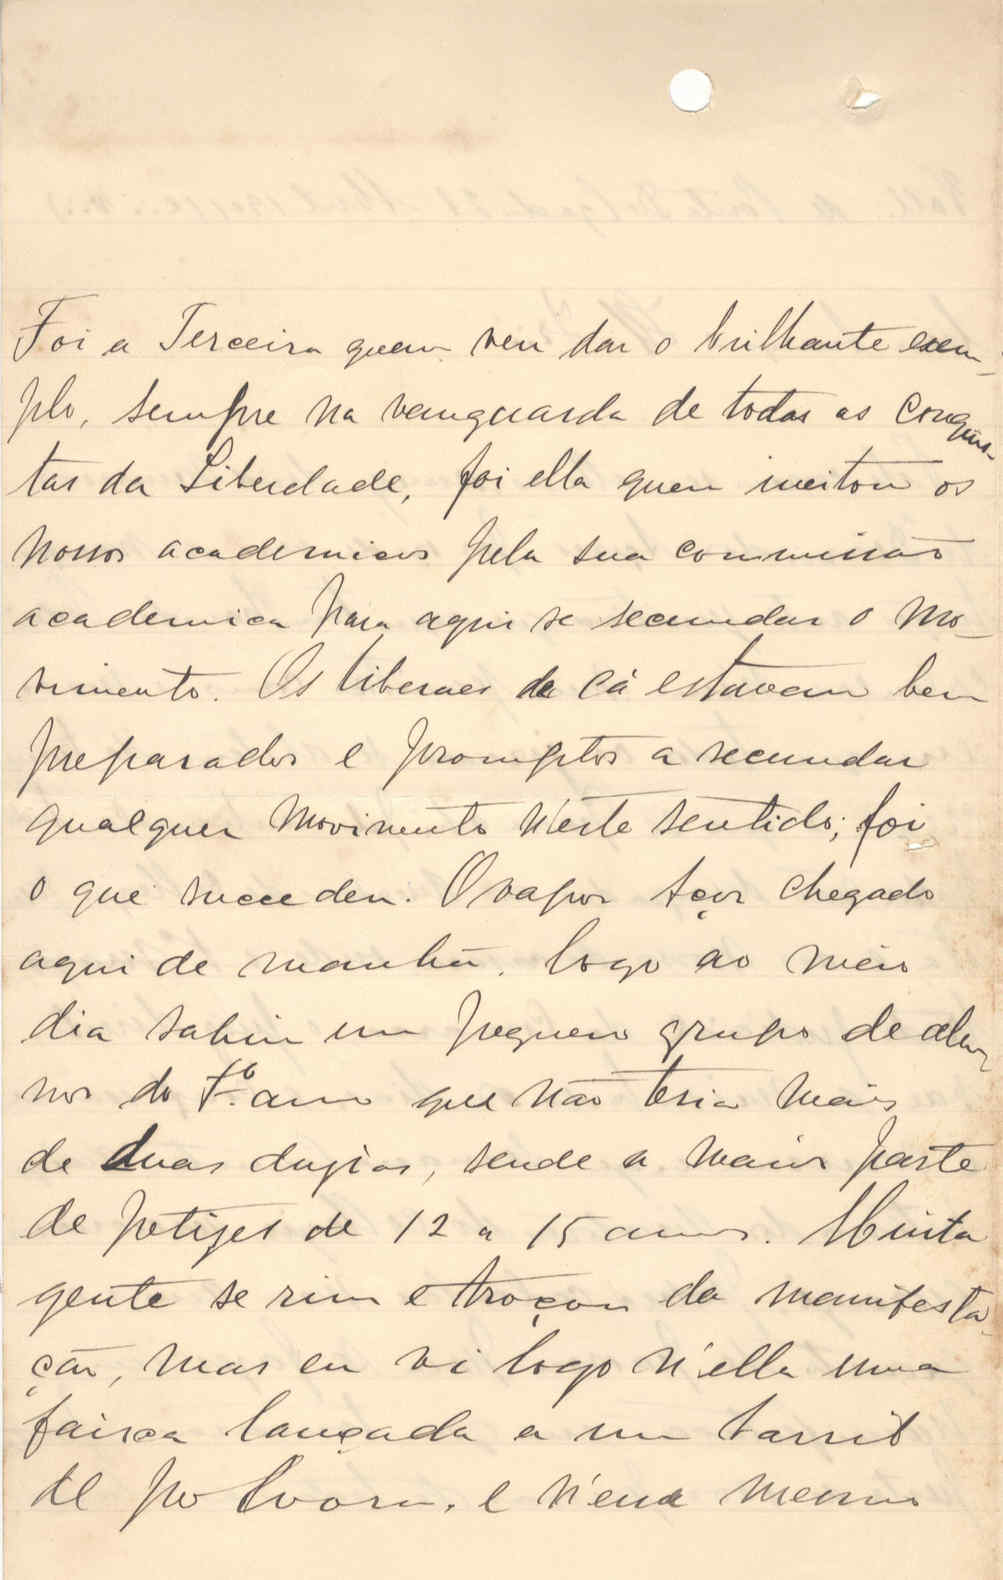 Foi a Terceira quem veu dar o brilhante exem-
plo, sempre na vanguarda de todas as conquis-
tas da Liberdade, foi ella quem incitou os
nossos academicos pela sua commissão
academica para aqui se secundar o mo-
vimento. Os liberaes de cá estavam bem
preparados e promptos a secundar
qualquer movimento n'este sentido; foi
o que succedeu. O vapor Açor chegado
aqui de manhã, logo ao meio
dia sahiu um pequeno grupo de alum-
nos do 7.º anno que não teria mais
de duas duzias, sendo a maior parte
de petizes de 12 a 15 annos. Muita
gente se riu e troçou da manifesta-
ção, mas eu vi logo n'ella uma
faisca lançada a um barril
de polvora, e n'essa mesma